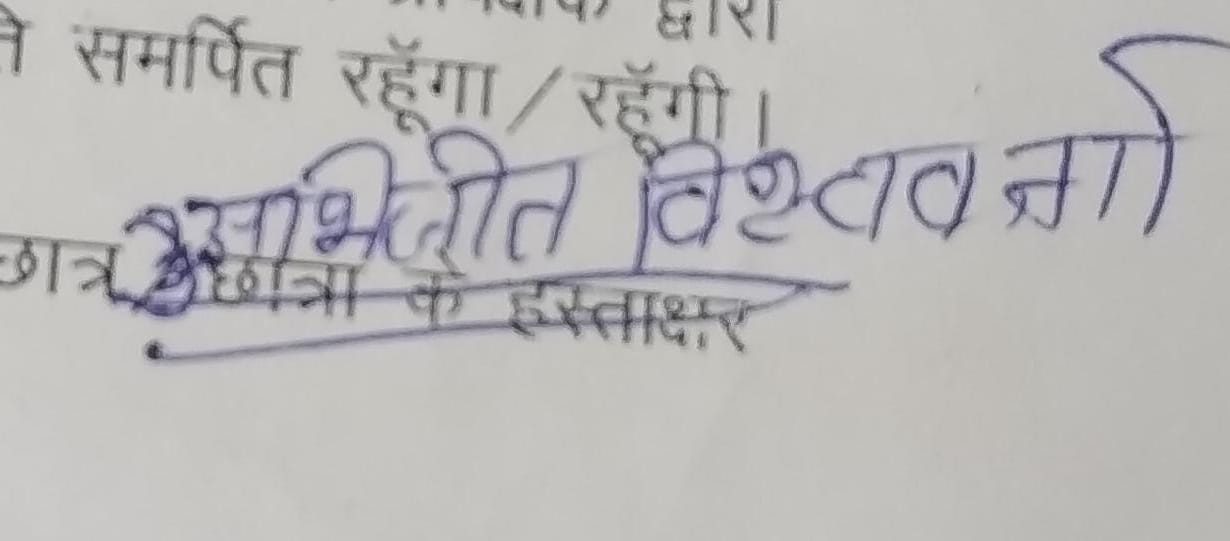 द्वारा
समर्पित रहूँगा / रहूँगी।
अभिजीत
छात्र छात्रा के हस्ताक्षर